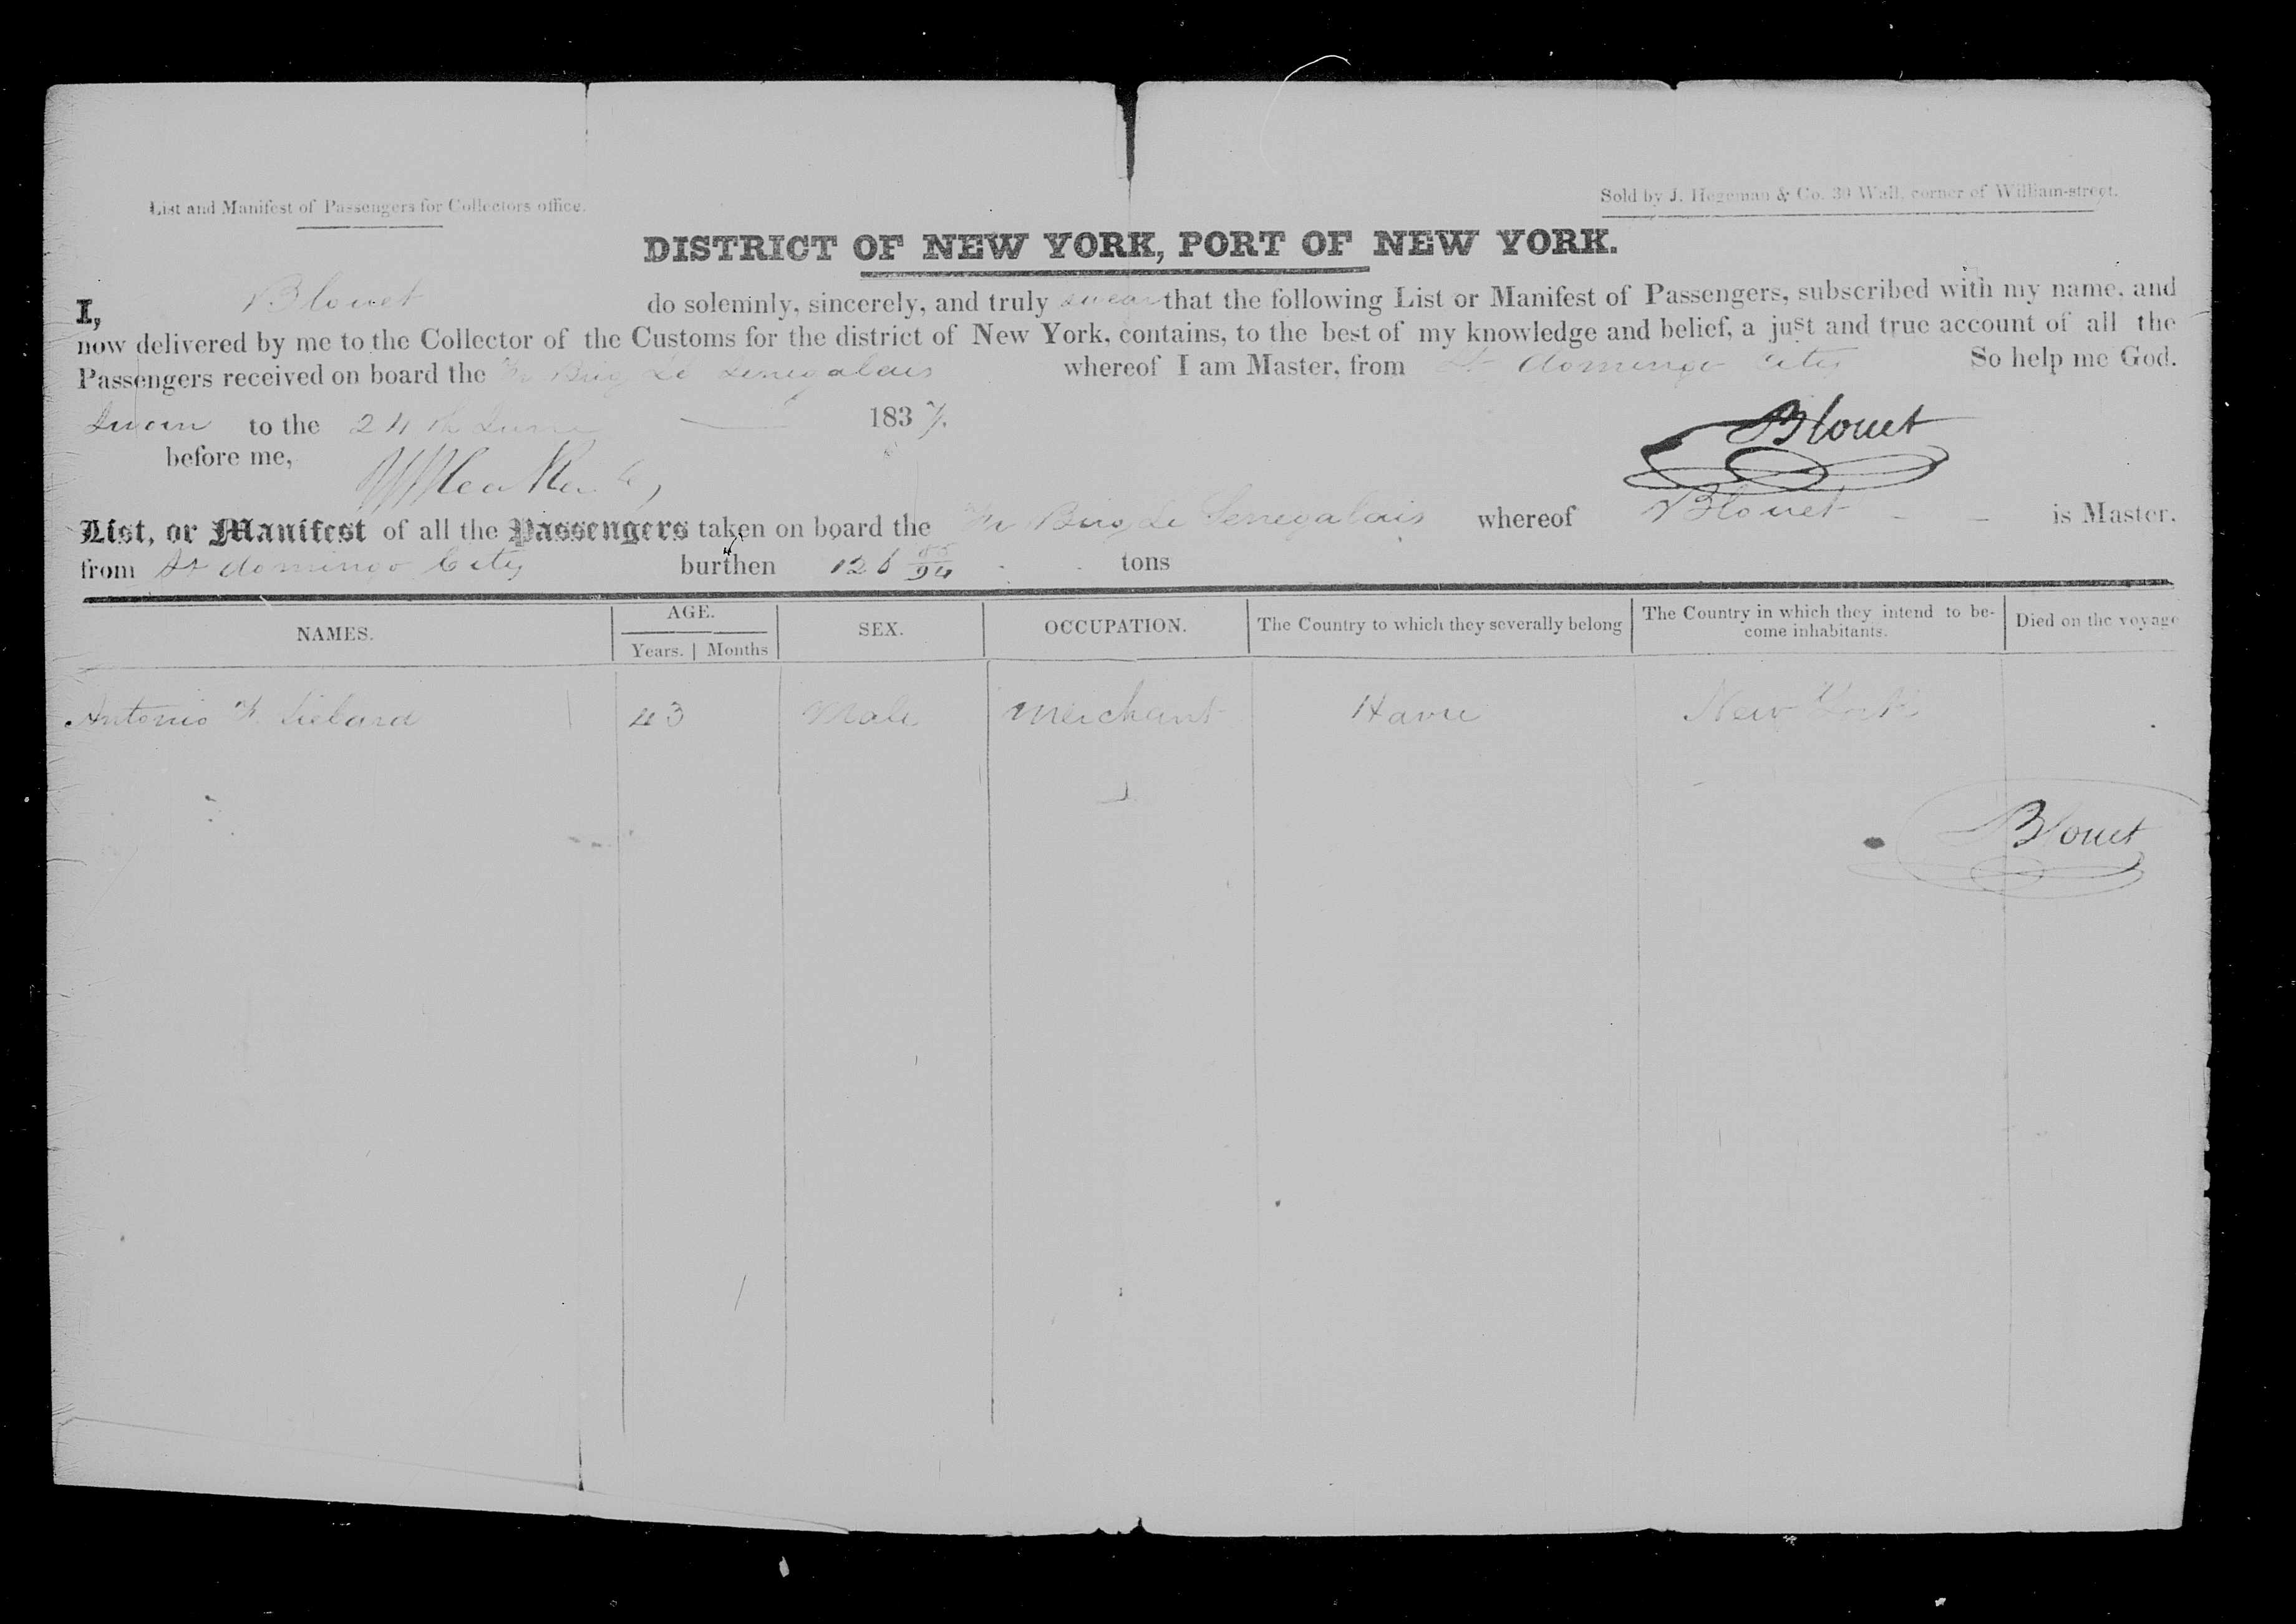 List and Manifest of Passengers for Collectors office.
Sold by J. Hegeman & Co. 30 Wall, corner of William-street.
DISTRICT OF NEW YORK, PORT OF NEW YORK.
I, Blouet do solemnly, sincerely, and truly swear that the following List or Manifest of Passengers, subscribed with my name, and
now delivered by me to the Collector of the Customs for the district of New York, contains, to the best of my knowledge and belief, a just and true account of all the
Passengers received on board the Fr Brig Le Senegalais whereof I am Master, from St domingo City So help me God.
Sworn to the 24th June 1837.
Blouet
before me,
List, or Manifest of all the Passengers taken on board the Fr Brig Le Senegalais whereof Blouet is Master.
from St domingo City burthen 126 tons
NAMES. AGE. SEX. OCCUPATION. The Country to which they severally belong The Country in which they intend to be-come inhabitants. Died on the voyage
Years. Months
Antonio 43 Male Merchant Havre New York
Blouet